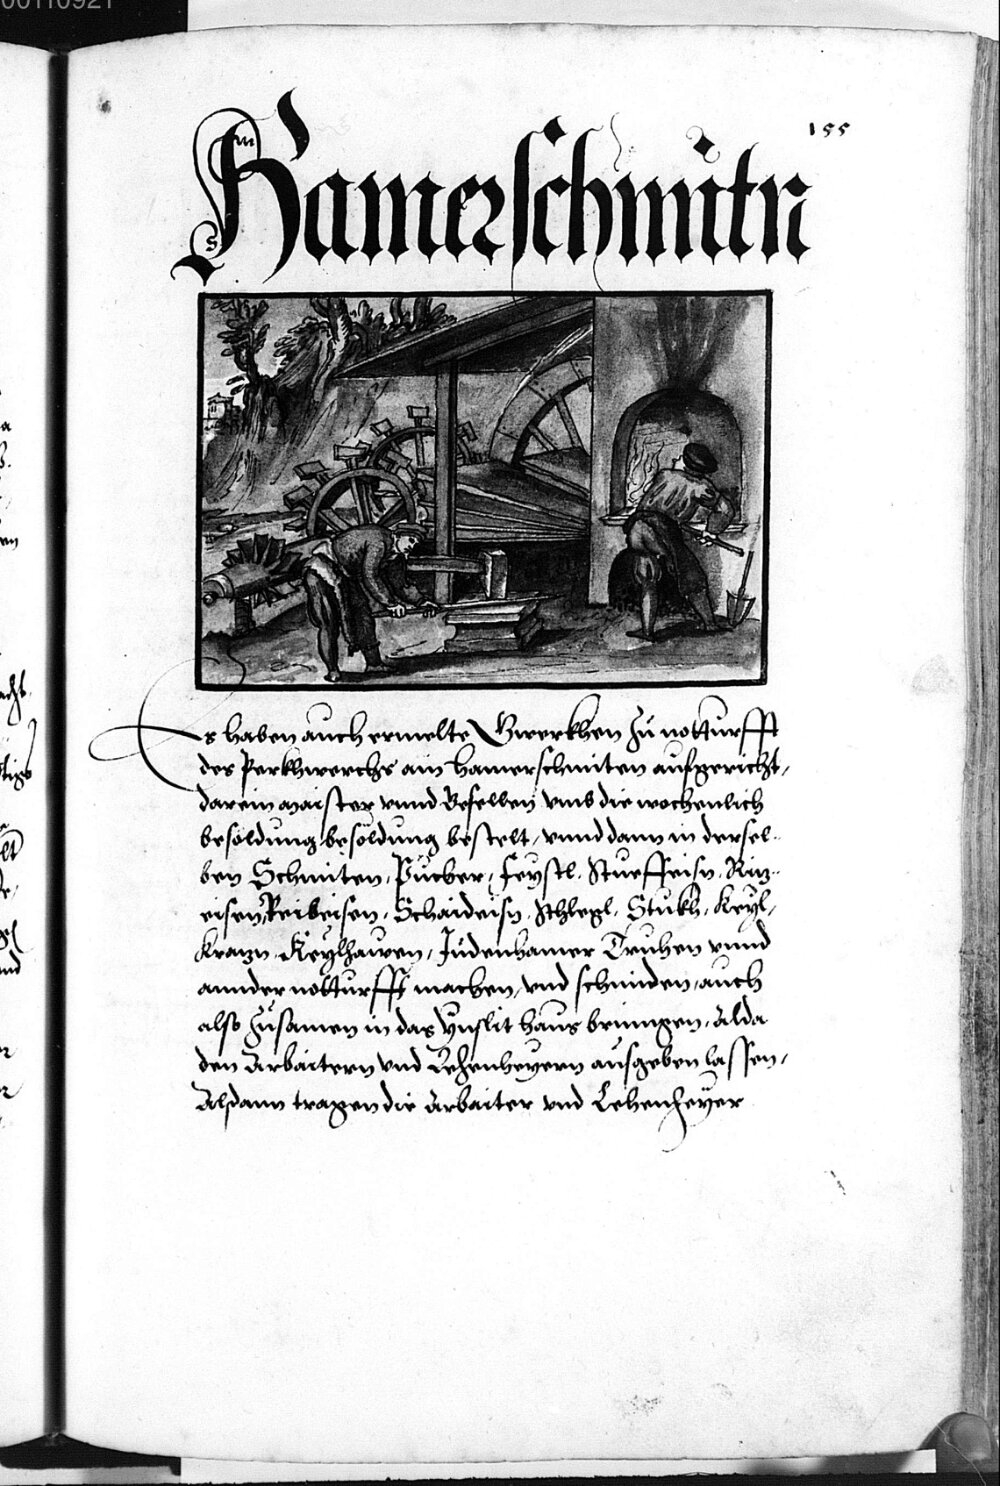 00110921
155
Hamerschmitn
Es haben auch ermelte Gwerckhen zu notturfft
des Perckhwerchs ain hamerschmiten aufgericht,
darein maister vnnd Gesellen vmb die wochenlich
besöldung besöldung bestelt, vnnd dann in dersel-
ben Schmiten, Pucker, Feystl, Stueffeisn, Riz-
eisen, Reibeisen, Schaideisn, Schlegl, Stukh, Keyl,
Krazn, Keylhawen, Judenhamer Truhen vnnd
annder notturfft machen, vnd schmiden, auch
also zusamen in das Vnslit haus bringen, Alda
den Arbaitern vnd Lehenheyern ausgeben lassen,
Alsdann tragen die Arbaiter vnd Lehenheyer